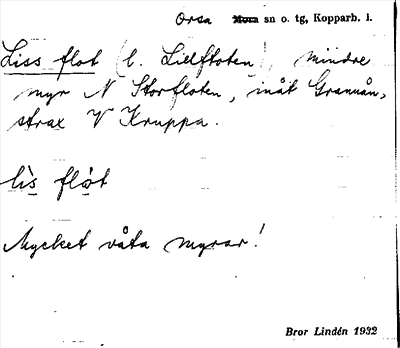 Orsa Mora sn o. tg, Kopparb. l.
Liss flot (l. Lillfloten), mindre
myr N Storfloten, inåt Granuån,
strax V Kruppa.
lìs flọt
Mycket våta myrar!
Bror Lindén 1932